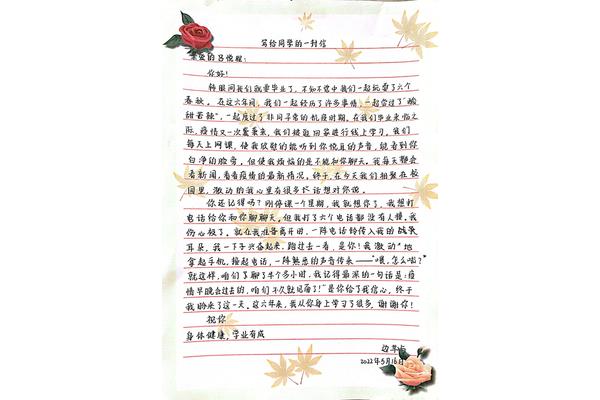 写给同学的一封信
亲爱的吕悦程:
你好!
转眼间我们就要毕业了,不知不觉中我们一起玩耍了六个
春秋。在这六年间,我们一起经历了许多事情,一起尝过了"酸
甜苦辣",一起度过了非同寻常的抗疫时期。在我们毕业来临之
际,疫情又一次袭来,我们被迫回家进行线上学习。我们
每天上网课,使我欣慰的能听到你悦耳的声音,能看到你
白净的脸旁。但使我烦恼的是不能和你聊天。我每天都会
看新闻,看看疫情的最新情况。终于,在今天我们相聚在校
园里,激动的我心里有很多话想对你说。
你还记得吗?刚停课一个星期,我就想你了,我想打
电话给你和你聊聊天。但我打了六个电话都没有人接。我
伤心极了。就在我准备离开时,一阵电话铃传入我的
耳朵,我一下子兴奋起来,跑过去一看,是你!我激动地
拿起手机,接起电话,一阵熟悉的声音传来——"喂,怎么啦?"
就这样,咱们了聊了半个多小时。我记得最深的一句话是:疫
情早晚会过去的,咱们不久就见面了!"是你给了我信心,终于
我盼来了这一天。这六年来,我从你身上学习了很多,谢谢你!
祝你
身体健康,学业有成
2022年5月16日